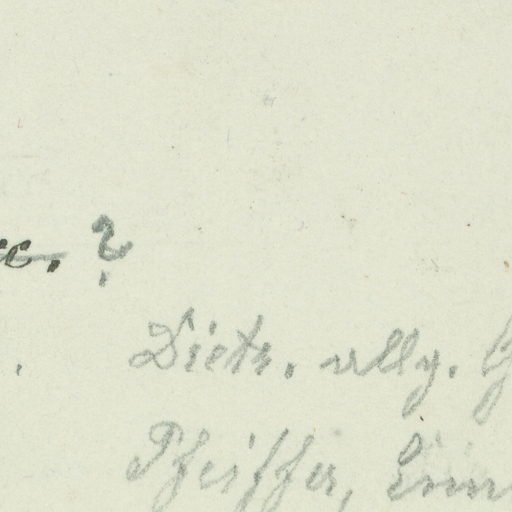 ?
Dietr. allg. G
Pfeiffer,